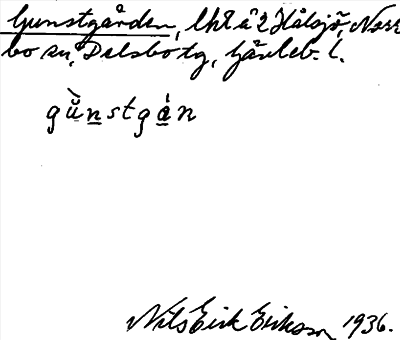 Gunstgården, lht å 2 Hålsjö, Norr
bo sn, Delsbo tg, Gävleb. l.
gù̲nstgá̲n
Nils Erik Eriksson 1936.